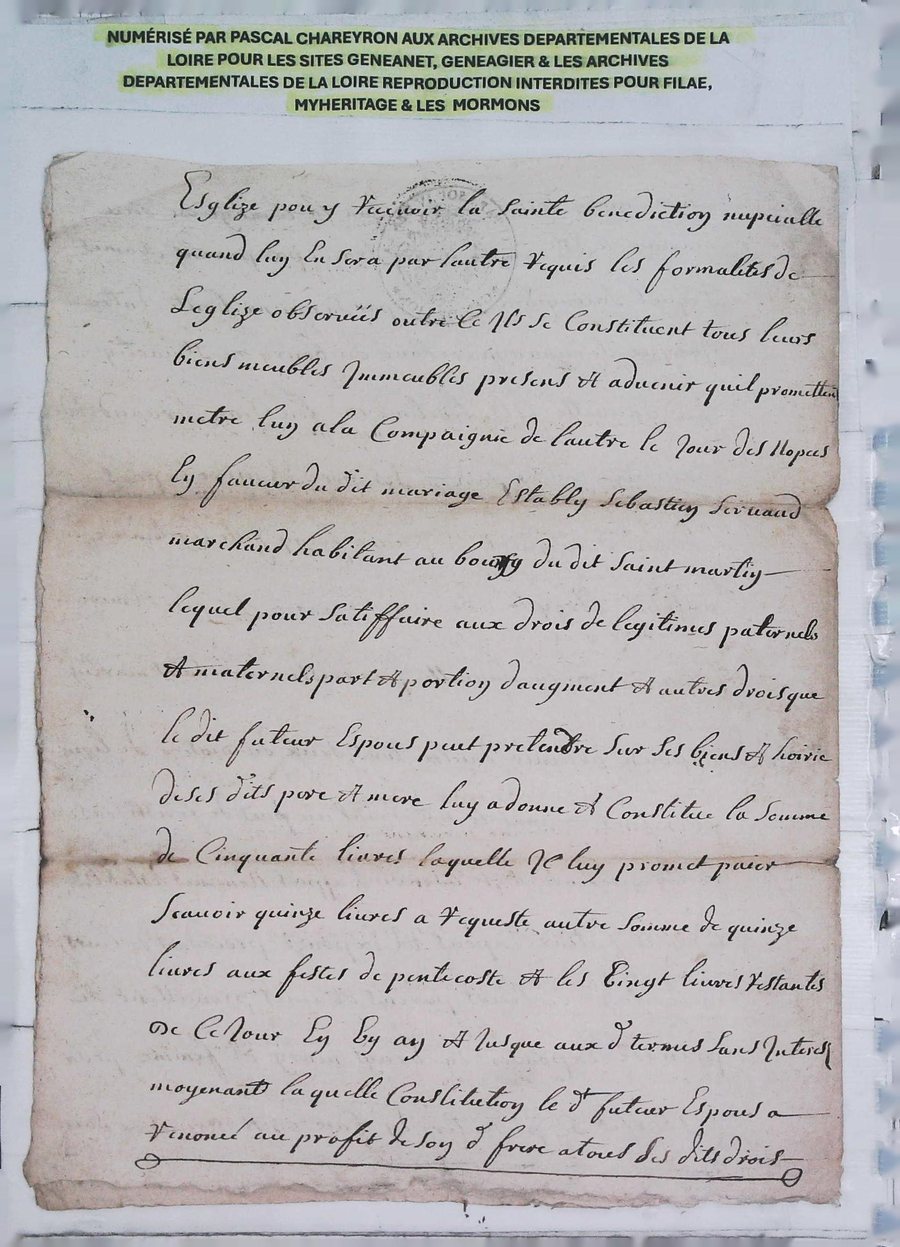 NUMÉRISÉ PAR PASCAL CHAREYRON AUX ARCHIVES DEPARTEMENTALES DE LA
LOIRE POUR LES SITES GENEANET, GENEAGIER & LES ARCHIVES
DEPARTEMENTALES DE LA LOIRE REPRODUCTION INTERDITES POUR FILAE,
MYHERITAGE & LES MORMONS
Esglize pour y recevoir la sainte benediction nupcialle
quand luy En sera par lautre requis les formalites de
Leglize observées outre ce Ils se Constituent tous leurs
biens meubles Immeubles presens et advenir quil promettent
metre luy a la Compaignie de lautre le Jour des Nopces
En faveur du dit mariage Estably Sebastien
marchand habitant au bourg du dit Saint martin
lequel pour satiffaire aux drois de legitimes paternels
et maternels part et portion daugment et autres drois que
le dit futeur Espous peut pretendre sur ses biens et hoirie
de ses dits pere et mere luy a donné et Constitue la somme
de Cinquante livres laquelle Il luy promet paier
Scavoir quinze livres a requeste autre somme de quinze
livres aux festes de pentecoste et les vingt livres restantes
De Ce Jour En un an et Jusque aux d termes sans Interest
moyenant laquelle Constitution le d futeur Espous a
renoncé au profit de son d frere a tous ses dits drois